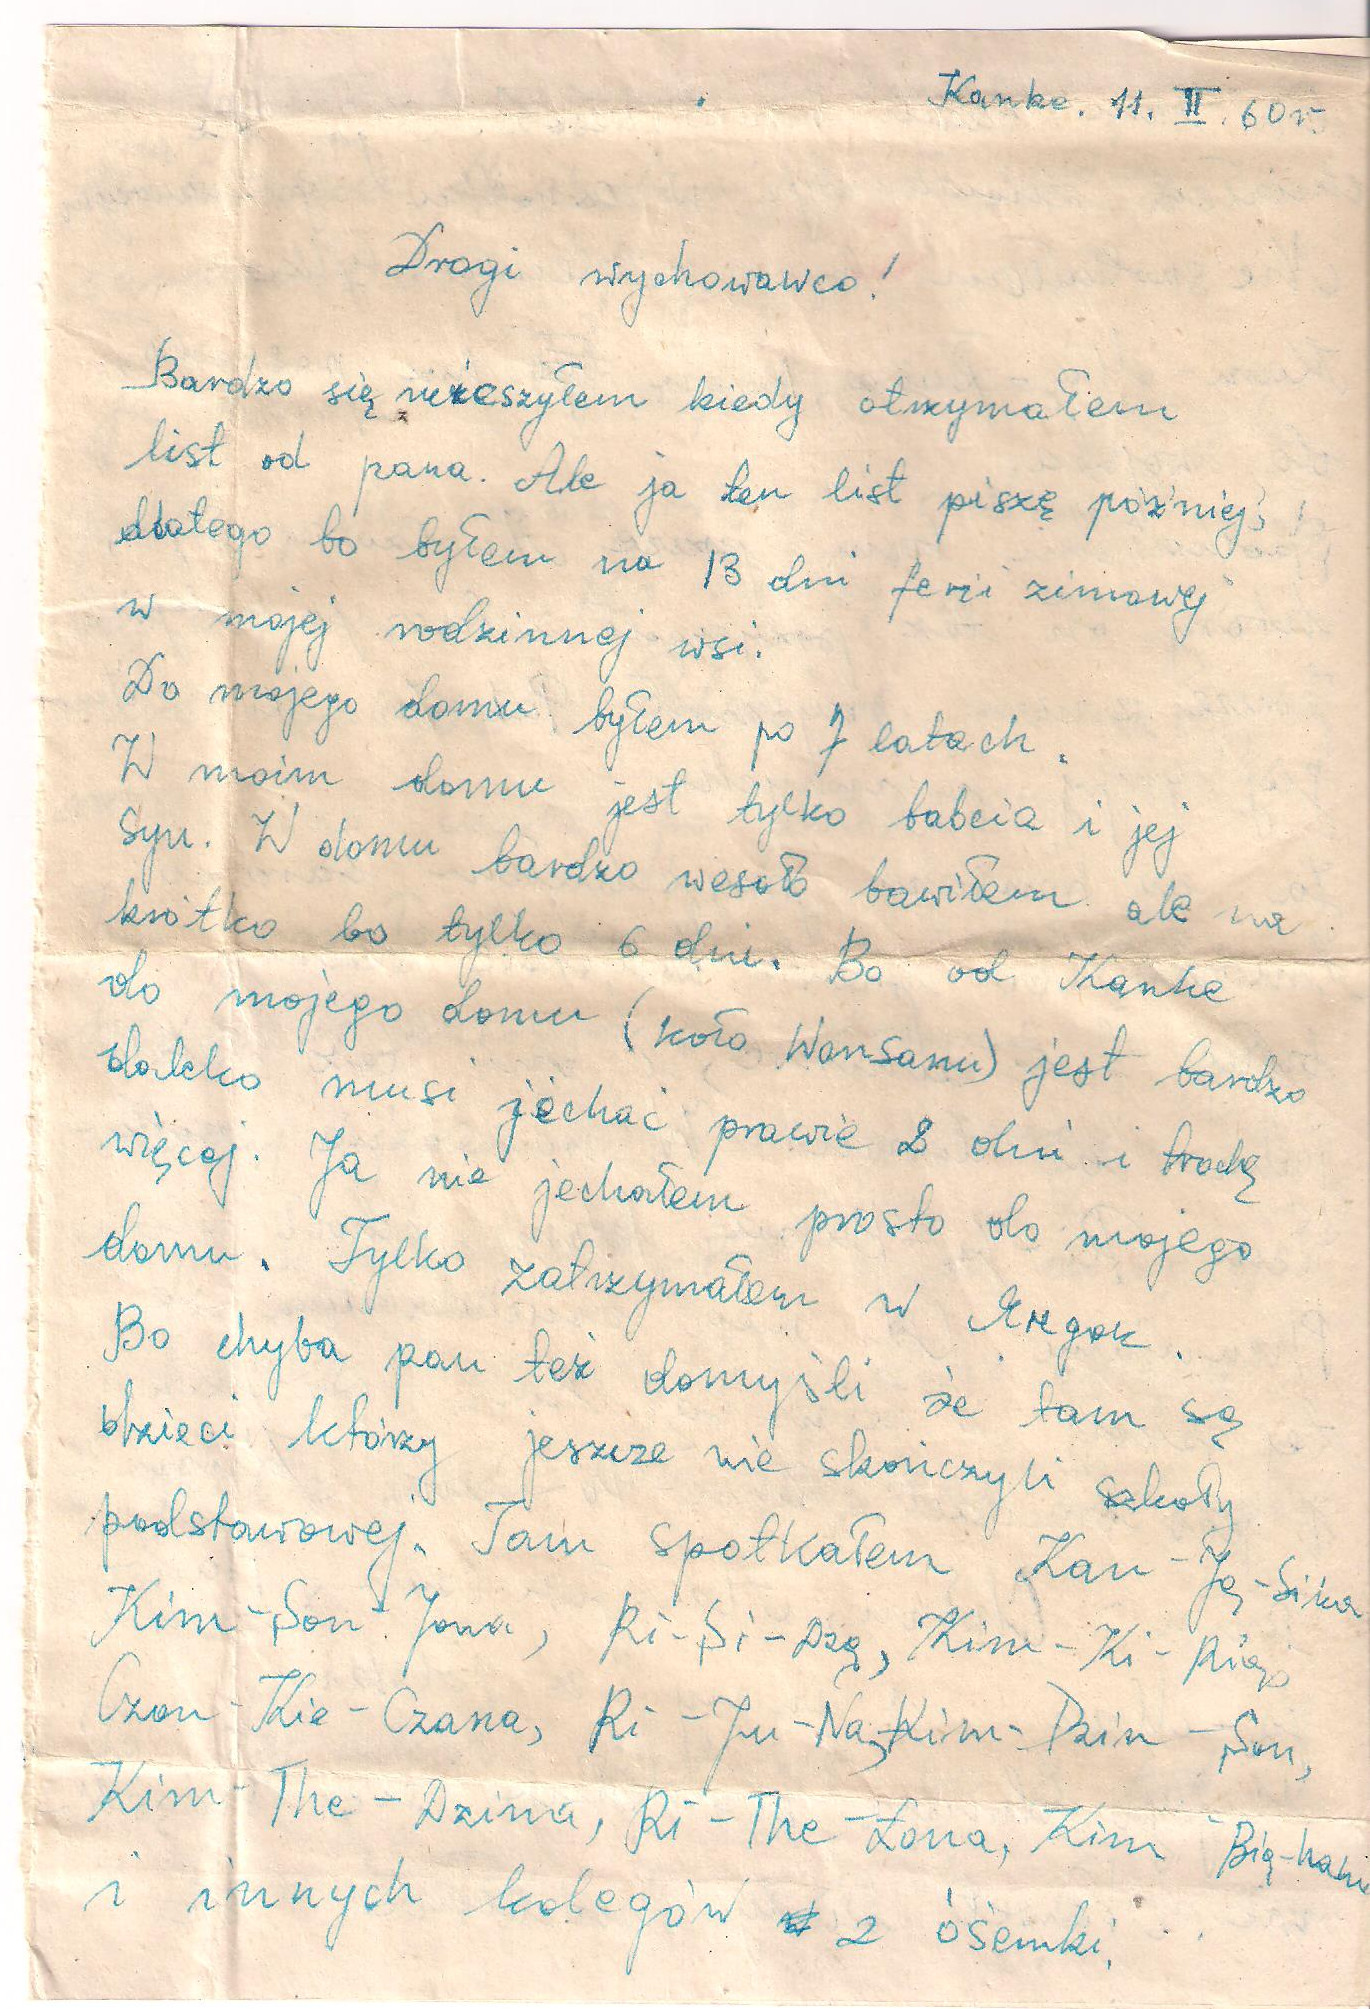 Kanke. 11. II. 60 r.
Drogi wychowawco!
Bardzo się ucieszyłem kiedy otrzymałem
list od pana. Ale ja ten list piszę później,
dlatego bo byłem na 13 dni ferii zimowej
w mojej rodzinnej wsi.
Do mojego domu byłem po 7 latach.
W moim domu jest tylko babcia i jej
syn. W domu bardzo wesoło bawiłem ale na
krótko bo tylko 6 dni. Bo od Kanke
do mojego domu (koło Wonsanu) jest bardzo
daleko musi jechać prawie 2 dni i trochę
więcej. Ja nie jechałem prosto do mojego
domu. Tylko zatrzymałem w
Bo chyba pan też domyśli że tam są
dzieci którzy jeszcze nie skończyli szkoły
podstawowej. Tam spotkałem Kan-Ją-Sika
Kim-Son-Jona, Ri-Si-Dzą, Kim-Ki-
Czon-Kie-Czana, Ri-Ju-Na, Kim-Dzin-Son,
Kim-The-Dzina, Ri-The-Łona, Kim Bią-
i innych kolegów z ósemki.